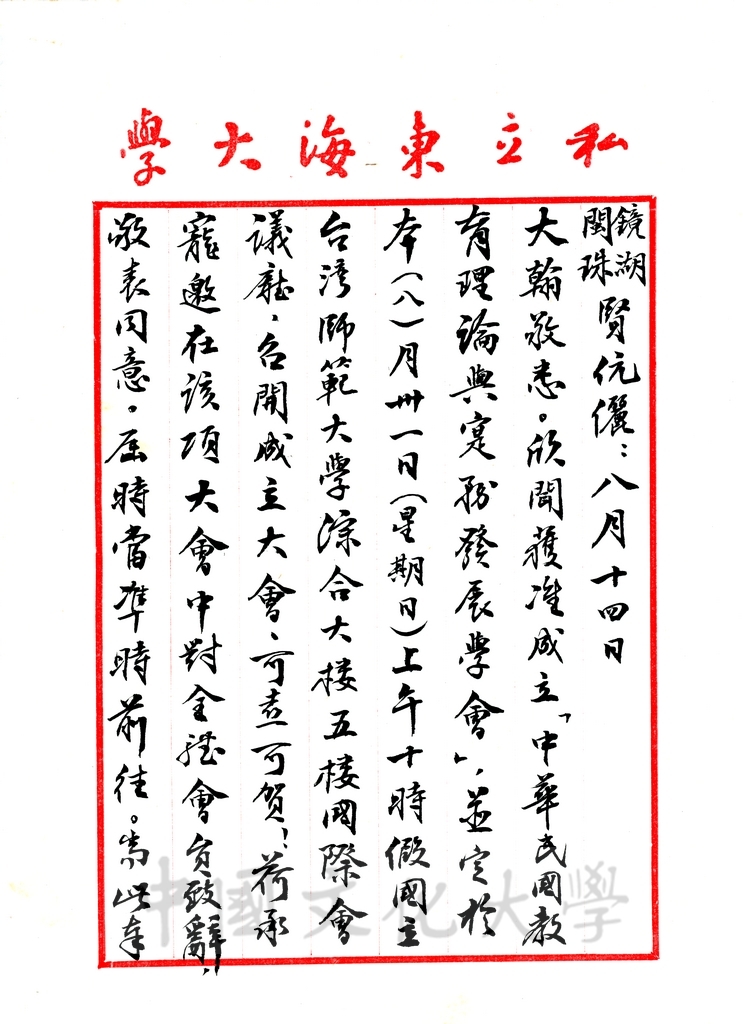 私立東海大學
鏡湖
閩珠賢伉儷：八月十四日
大翰敬悉。欣聞獲准成立「中華民國教
育理論與實務發展學會」，並定於
本（八）月卅一日（星期日）上午十時假國立
台灣師範大學綜合大楼五楼國際會
議廳，召開成立大會，可喜可賀！荷承
寵邀在該項大會中對全體會員致辭，
敬表同意。屆時當準時前往。耑此奉
中國文化大學